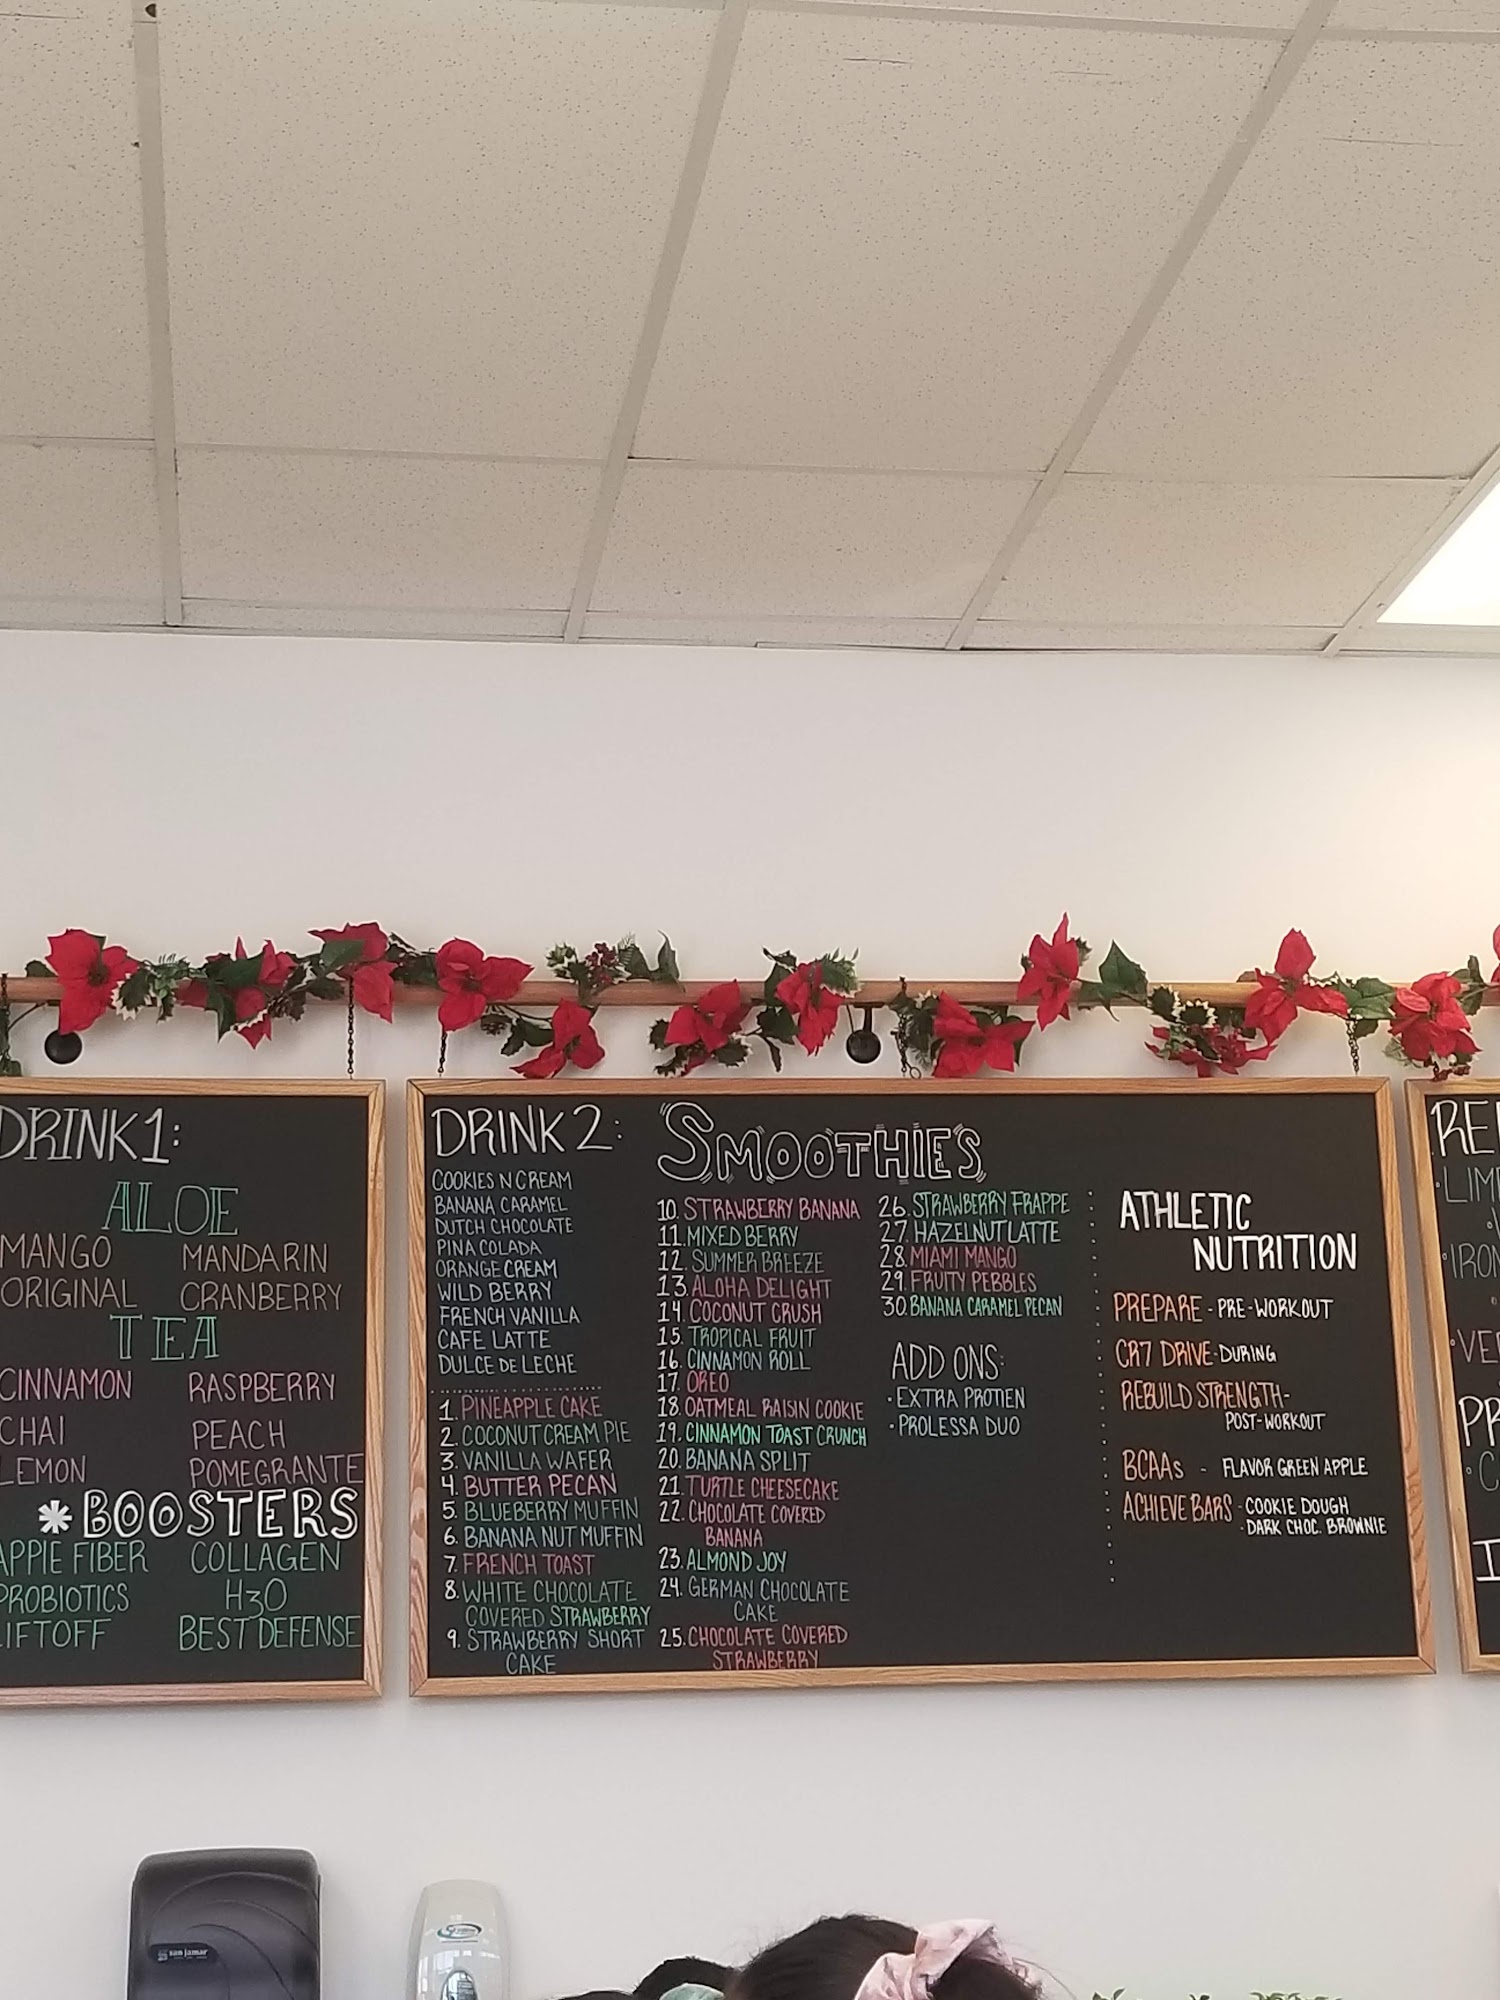 DRINK 1:
ALOE
MANGO MANDARIN
ORIGINAL CRANBERRY
TEA
CINNAMON RASPBERRY
CHAI PEACH
LEMON POMEGRANTE
*BOOSTERS
APPIE FIBER COLLAGEN
PROBIOTICS H3O
LIFTOFF BEST DEFENSE
DRINK 2:
COOKIES N CREAM
BANANA CARAMEL
DUTCH CHOCOLATE
PINA COLADA
ORANGE CREAM
WILD BERRY
FRENCH VANILLA
CAFE LATTE
DULCE DE LECHE
1. PINEAPPLE CAKE
2. COCONUT CREAM PIE
3. VANILLA WAFER
4. BUTTER PECAN
5. BLUEBERRY MUFFIN
6. BANANA NUT MUFFIN
7. FRENCH TOAST
8. WHITE CHOCOLATE
COVERED STRAWBERRY
9. STRAWBERRY SHORT
CAKE
SMOOTHIES
10. STRAWBERRY BANANA
11. MIXED BERRY
12. SUMMER BREEZE
13. ALOHA DELIGHT
14. COCONUT CRUSH
15. TROPICAL FRUIT
16. CINNAMON ROLL
17. OREO
18. OATMEAL RAISIN COOKIE
19. CINNAMON TOAST CRUNCH
20. BANANA SPLIT
21. TURTLE CHEESECAKE
22. CHOCOLATE COVERED
BANANA
23. ALMOND JOY
24. GERMAN CHOCOLATE
CAKE
25. CHOCOLATE COVERED
STRAWBERRY
26. STRAWBERRY FRAPPE
27. HAZELNUT LATTE
28. MIAMI MANGO
29. FRUITY PEBBLES
30. BANANA CARAMEL PECAN
ADD ONS:
• EXTRA PROTIEN
• PROLESSA DUO
ATHLETIC
NUTRITION
PREPARE - PRE-WORKOUT
CR7 DRIVE - DURING
REBUILD STRENGTH -
POST-WORKOUT
BCAAs - FLAVOR GREEN APPLE
ACHIEVE BARS - COOKIE DOUGH
• DARK CHOC. BROWNIE
san jamar